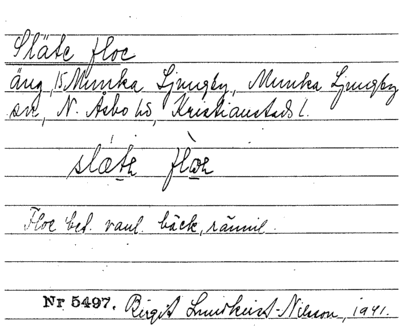 Släte floe
äng, 15 Munka Ljungby, Munka Ljungby
sn, N. Åsbo hd, Kristianstads l.
slǽte flòe
Floe bet. vanl. bäck, rännil.
Nr 5497. Birgit Lundkvist-Nilsson, 1941.